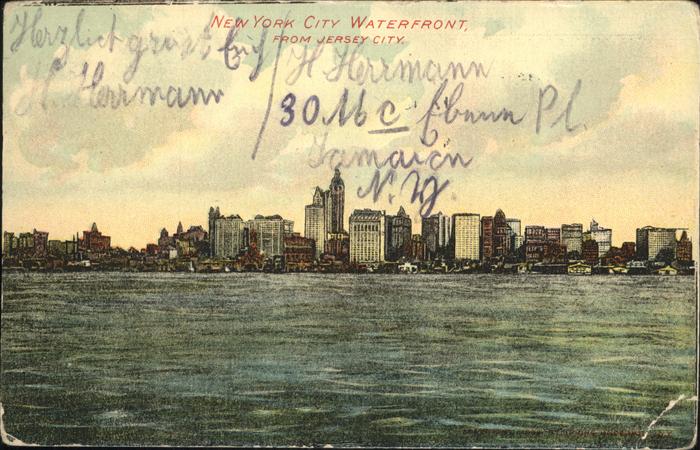 NEW YORK CITY WATERFRONT,
FROM JERSEY CITY.
Herzlich grüst Euch
H. Herrmann
H Herrmann
30 Mc Pl.
Jamaica
N.Y.